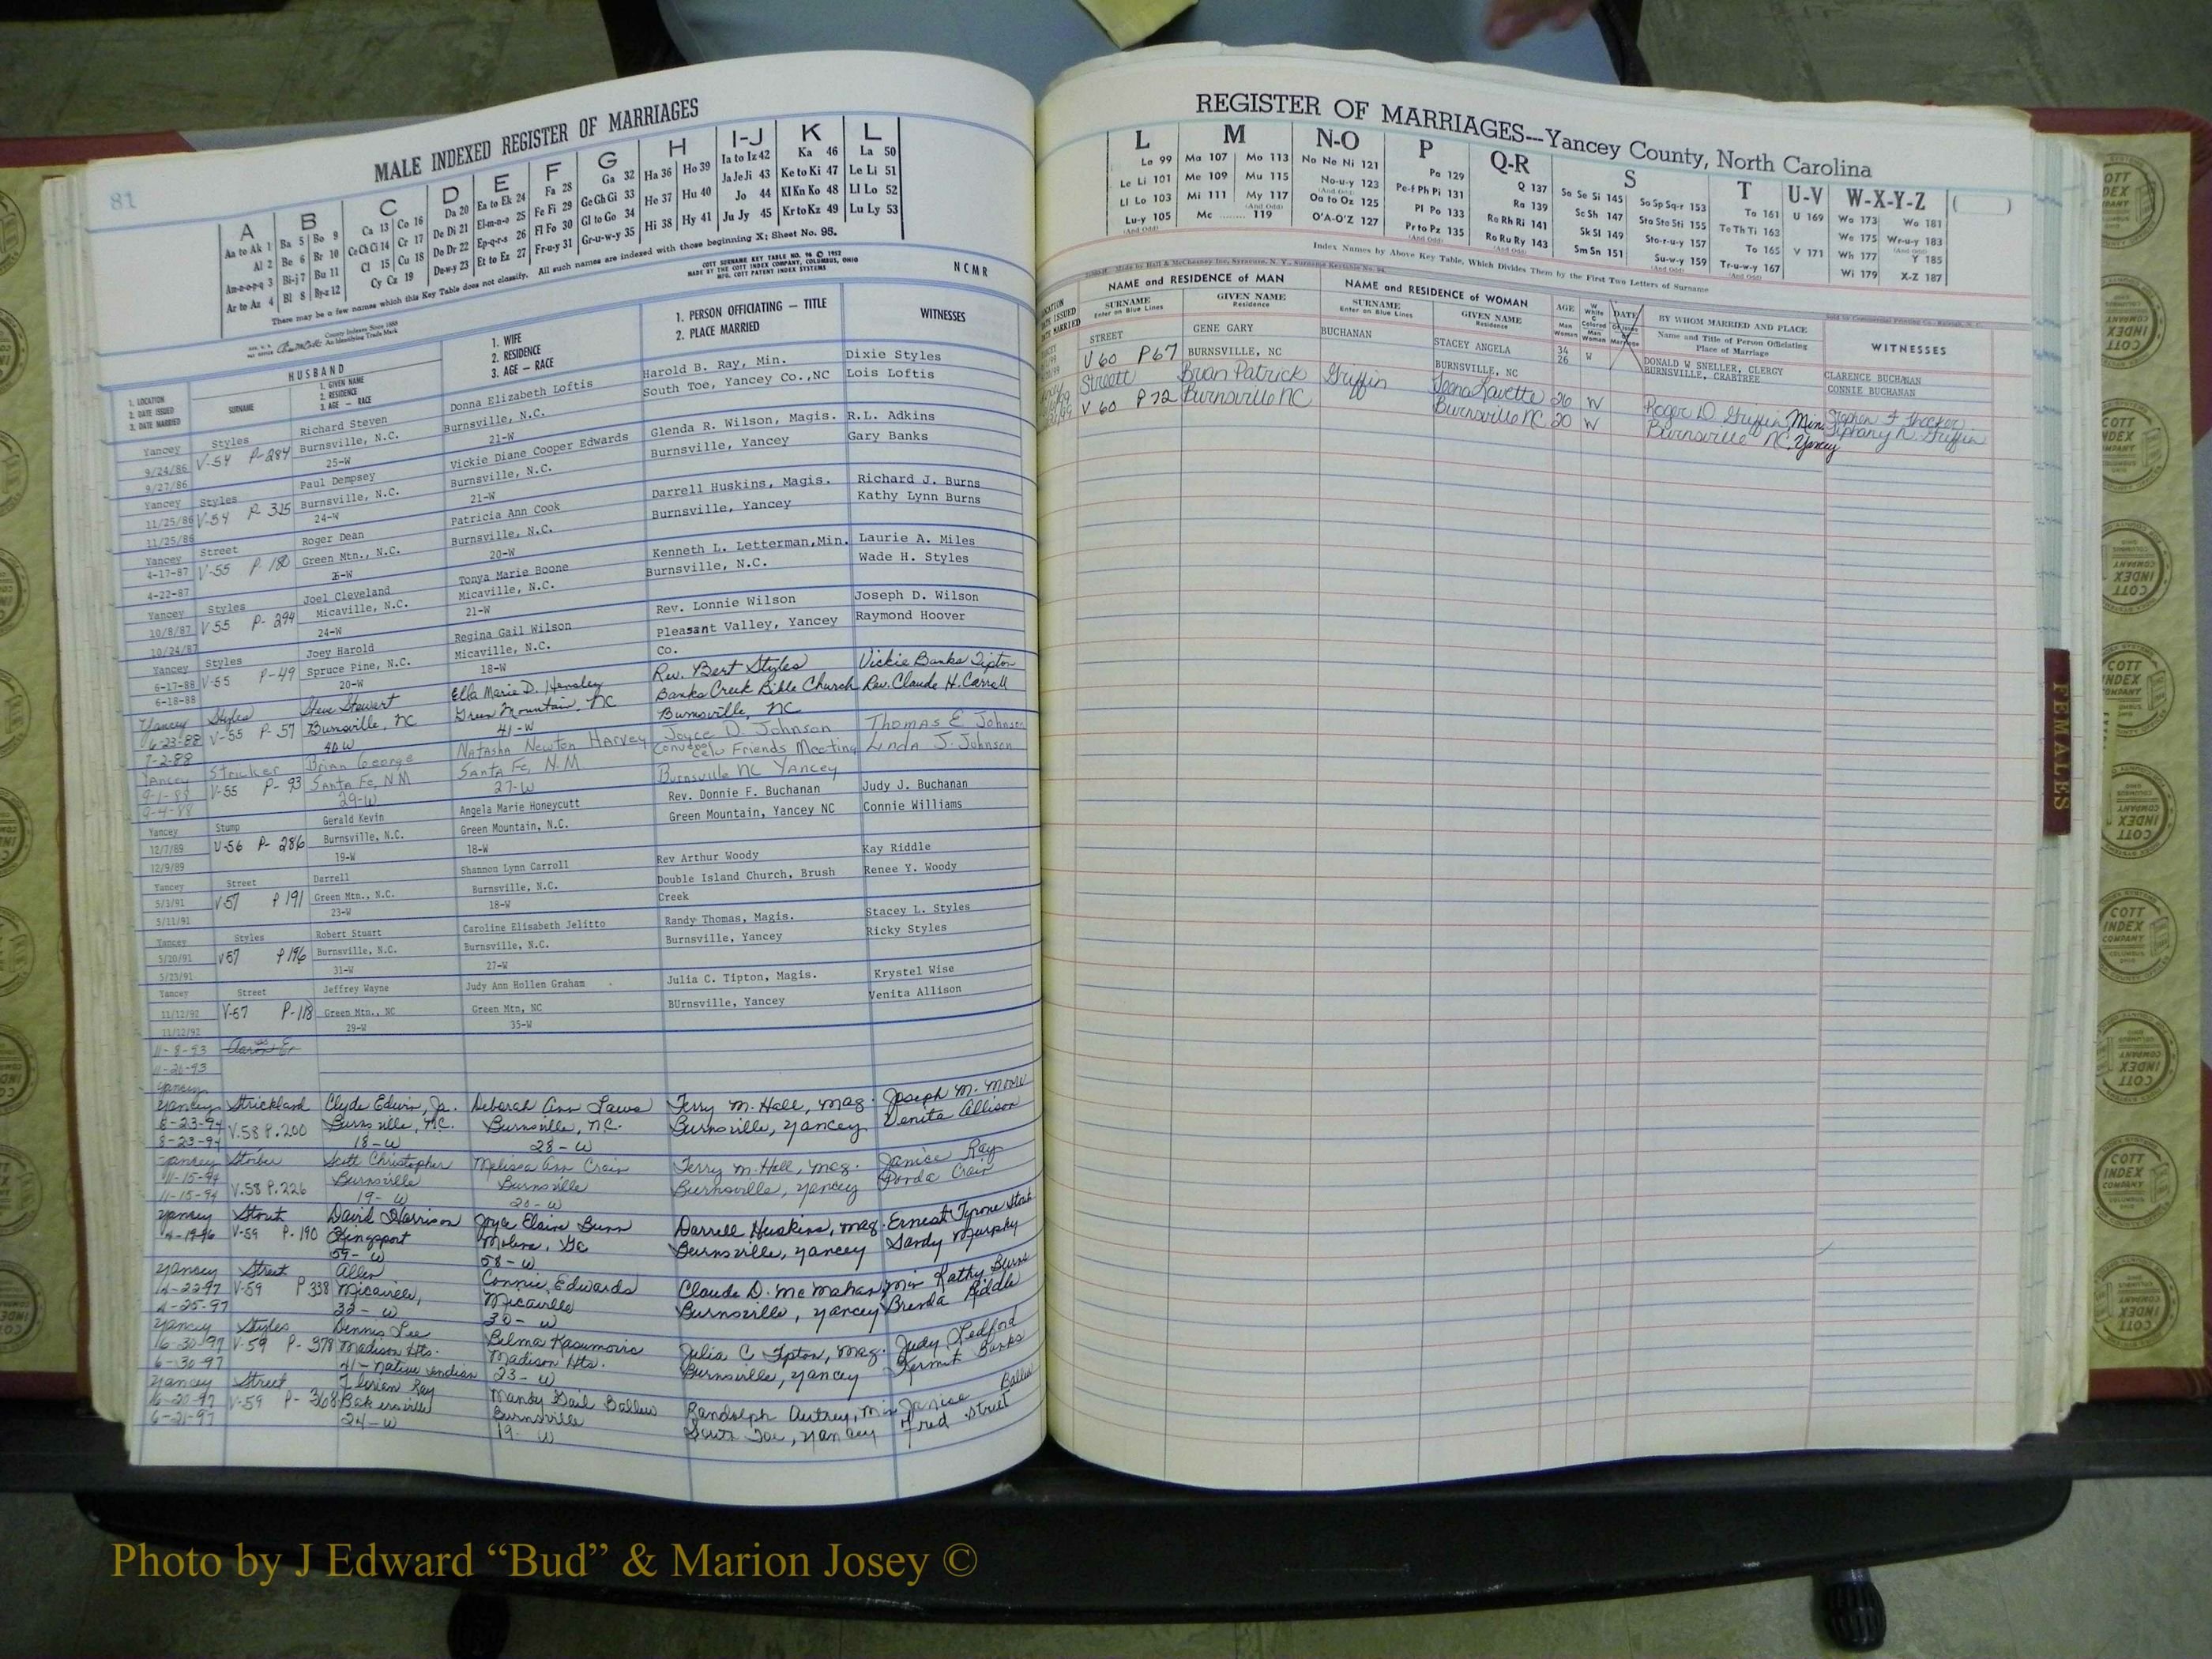 81
MALE INDEXED REGISTER OF MARRIAGES
A B C D E F G H I-J K L
Aa to Ak 1 Ba 5 Bo 9 Ca 13 Co 16 Da 20 Ea to Ek 24 Fa 28 Ga 32 Ha 36 Ho 39 Ia to Iz 42 Ka 46 La 50
Al 2 Be 6 Br 10 Ce Ch Ci 14 Cr 17 De Di 21 El-m-n-o 25 Fe Fi 29 Ge Gh Gi 33 He 37 Hu 40 Ja Je Ji 43 Ke to Ki 47 Le Li 51
Am-n-o-p-q 3 Bi-j 7 Bu 11 Cl 15 Cu 18 Do Dr 22 Ep-q-r-s 26 Fl Fo 30 Gl to Go 34 Hi 38 Hy 41 Jo 44 Kl Kn Ko 48 Ll Lo 52
Ar to Az 4 Bl 8 By-z 12 Cy Cz 19 Du-w-y 23 Et to Ez 27 Fr-u-y 31 Gr-u-w-y 35 Ju Jy 45 Kr to Kz 49 Lu Ly 53
There may be a few names which this Key Table does not classify. All such names are indexed with those beginning X; Sheet No. 95.
County Indexes Since 1888
An Identifying Trade Mark
COTT SURNAME KEY TABLE NO. 96 © 1952
MADE BY THE COTT INDEX COMPANY, COLUMBUS, OHIO
MFG. COTT PATENT INDEX SYSTEMS
NCMR
1. LOCATION
2. DATE ISSUED
3. DATE MARRIED
HUSBAND
SURNAME
1. GIVEN NAME
2. RESIDENCE
3. AGE — RACE
1. WIFE
2. RESIDENCE
3. AGE — RACE
1. PERSON OFFICIATING — TITLE
2. PLACE MARRIED
WITNESSES
Yancey Styles Richard Steven Donna Elizabeth Loftis Harold B. Ray, Min. Dixie Styles
9/24/86 V-54 P-284 Burnsville, N.C. Burnsville, N.C. South Toe, Yancey Co.,NC Lois Loftis
9/27/86 25-W 21-W
Yancey Styles Paul Dempsey Vickie Diane Cooper Edwards Glenda R. Wilson, Magis. R.L. Adkins
11/25/86 V-54 P. 325 Burnsville, N.C. Burnsville, N.C. Burnsville, Yancey Gary Banks
11/25/86 24-W 21-W
Yancey Street Roger Dean Patricia Ann Cook Darrell Huskins, Magis. Richard J. Burns
4-17-87 V-55 P 180 Green Mtn., N.C. Burnsville, N.C. Burnsville, Yancey Kathy Lynn Burns
4-22-87 20-W
Yancey Styles Joel Cleveland Tonya Marie Boone Kenneth L. Letterman,Min. Laurie A. Miles
10/8/87 V55 P- 294 Micaville, N.C. Micaville, N.C. Burnsville, N.C. Wade H. Styles
10/24/87 24-W 21-W
Yancey Styles Joey Harold Regina Gail Wilson Rev. Lonnie Wilson Joseph D. Wilson
6-17-88 V-55 P-49 Spruce Pine, N.C. Micaville, N.C. Pleasant Valley, Yancey Raymond Hoover
6-18-88 20-W 18-W Co.
Yancey Styles Steve Stewart Ella Marie D. Hensley Rev. Bert Styles Vickie Banks Tipton
6-23-88 V-55 P- 57 Burnsville, NC Green Mountain, NC Banks Creek Bible Church Rev. Claude H. Carroll
7-2-88 40 W 41-W Burnsville, NC
Yancey Stricker Brian George Natasha Newton Harvey Joyce D Johnson Thomas E Johnson
9-1-88 V-55 P- 93 Santa Fe, NM Santa Fe, N.M Celo Friends Meeting Linda J. Johnson
9-4-88 29-W 27-W Burnsville NC Yancey
Yancey Stump Gerald Kevin Angela Marie Honeycutt Rev. Donnie F. Buchanan Judy J. Buchanan
12/7/89 V-56 P- 286 Burnsville, N.C. Green Mountain, N.C. Green Mountain, Yancey NC Connie Williams
12/9/89 19-W 18-W
Yancey Street Darrell Shannon Lynn Carroll Rev Arthur Woody Kay Riddle
5/3/91 V-57 P 191 Green Mtn., N.C. Burnsville, N.C. Double Island Church, Brush Renee Y. Woody
5/11/91 23-W 18-W Creek
Yancey Styles Robert Stuart Caroline Elisabeth Jelitto Randy Thomas, Magis. Stacey L. Styles
5/20/91 V57 P196 Burnsville, N.C. Burnsville, N.C. Burnsville, Yancey Ricky Styles
5/23/91 31-W 27-W
Yancey Street Jeffrey Wayne Judy Ann Hollen Graham Julia C. Tipton, Magis. Krystel Wise
11/12/92 V-57 P-118 Green Mtn., NC Green Mtn, NC BUrnsville, Yancey Venita Allison
11/12/92 29-W 35-W
11-8-93
11-26-93
Yancey
Yancey Strickland Clyde Edwin, Jr. Deborah Ann Laws Terry M. Hall, Mag. Joseph M. Moore
8-23-94 V.58 P.200 Burnsville, N.C. Burnsville, N.C. Burnsville, Yancey Venita Allison
8-23-94 18-W 28-W
Yancey Stoiber Scott Christopher Melissa Ann Crain Terry M. Hall, Mag. Janice Ray
11-15-94 V.58 P.226 Burnsville Burnsville Burnsville, Yancey Crain
11-15-94 19-W 20-W
Yancey Stout David Harrison Joyce Elaine Bunn Darrell Huskins, Mag. Ernest Tyrone Stout
V-59 P. 190 Kingsport Burnsville, Yancey Sandy Murphy
59-W 58-W
Yancey Street Allen Connie Edwards Claude D. McMahan, Min Kathy Burns
4-22-97 V-59 P 338 Micaville, Micaville Burnsville, Yancey Brenda Riddle
4-25-97 32-W 30-W
Yancey Styles Dennis Lee Belma Kasumovic Julia C Tipton, Mag. Judy Ledford
6-30-97 V-59 P- 378 Madison Hts. Madison Hts. Burnsville, Yancey Kermit Banks
6-30-97 41-Native Indian 23-W
Yancey Street Florian Ray Mandy Gail Ballew Randolph Autrey, Min Janice Ballew
6-20-97 V-59 P- 368 Bakersville Burnsville South Toe, Yancey Fred Street
6-21-97 24-W 19-W
REGISTER OF MARRIAGES---Yancey County, North Carolina
L M N-O P Q-R S T U-V W-X-Y-Z ( )
La 99 Ma 107 Mo 113 Na Ne Ni 121 Pa 129 Q 137 Sa Se Si 145 So Sp Sq-r 153 Ta 161 U 169 Wa 173 Wo 181
Le Li 101 Me 109 Mu 115 No-u-y 123 Pe-f Ph Pi 131 Ra 139 Sc Sh 147 Sta Ste Sti 155 Te Th Ti 163 We 175 Wr-u-y 183
Ll Lo 103 Mi 111 My 117 Oa to Oz 125 Pl Po 133 Re Rh Ri 141 Sk Sl 149 Sto-r-u-y 157 To 165 V 171 Wh 177 Y 185
Lu-y 105 Mc 119 O'A-O'Z 127 Pr to Pz 135 Ro Ru Ry 143 Sm Sn 151 Su-w-y 159 Tr-u-w-y 167 Wi 179 X-Z 187
Index Names by Above Key Table, Which Divides Them by the First Two Letters of Surname
Made by Hall & McChesney Inc., Syracuse, N. Y., Surname Keytable No. 94
LOCATION
DATE ISSUED
DATE MARRIED
NAME and RESIDENCE of MAN
SURNAME
Enter on Blue Lines
GIVEN NAME
Residence
NAME and RESIDENCE of WOMAN
SURNAME
Enter on Blue Lines
GIVEN NAME
Residence
AGE
Man
Woman
W
White
C
Colored
Man
Woman
DATE
Marriage
BY WHOM MARRIED AND PLACE
Name and Title of Person Officiating
Place of Marriage
WITNESSES
STREET GENE GARY BUCHANAN STACEY ANGELA 34 W DONALD W SNELLER, CLERGY CLARENCE BUCHANAN
V60 P67 BURNSVILLE, NC BURNSVILLE, NC 26 BURNSVILLE, CRABTREE CONNIE BUCHANAN
Streett Brian Patrick Griffin Leona Lavette 26 W Roger D Griffin, Min. Stephen F Thacker
V 60 P 72 Burnsville NC Burnsville NC 20 W Burnsville NC, Yancey Tiphany N. Griffin
FEMALES
COTT
INDEX
COMPANY
COLUMBUS
OHIO
Photo by J Edward “Bud” & Marion Josey ©